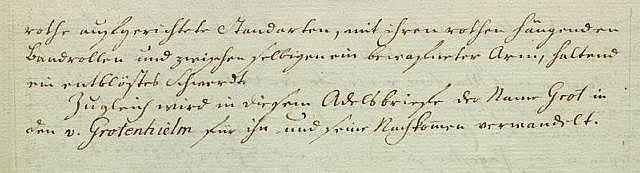 rothe aufgerichtete Standarten, mit ihren rothen hängenden
Bandrollen und zwischen selbigen ein bewafneter Arm, haltend
ein entblöstes Schwerdt
Zugleich wird in diesem Adelsbriefe der Name Grot in
den v. Grotenhielm für ihn und seine Nachkom̄en verwandelt.